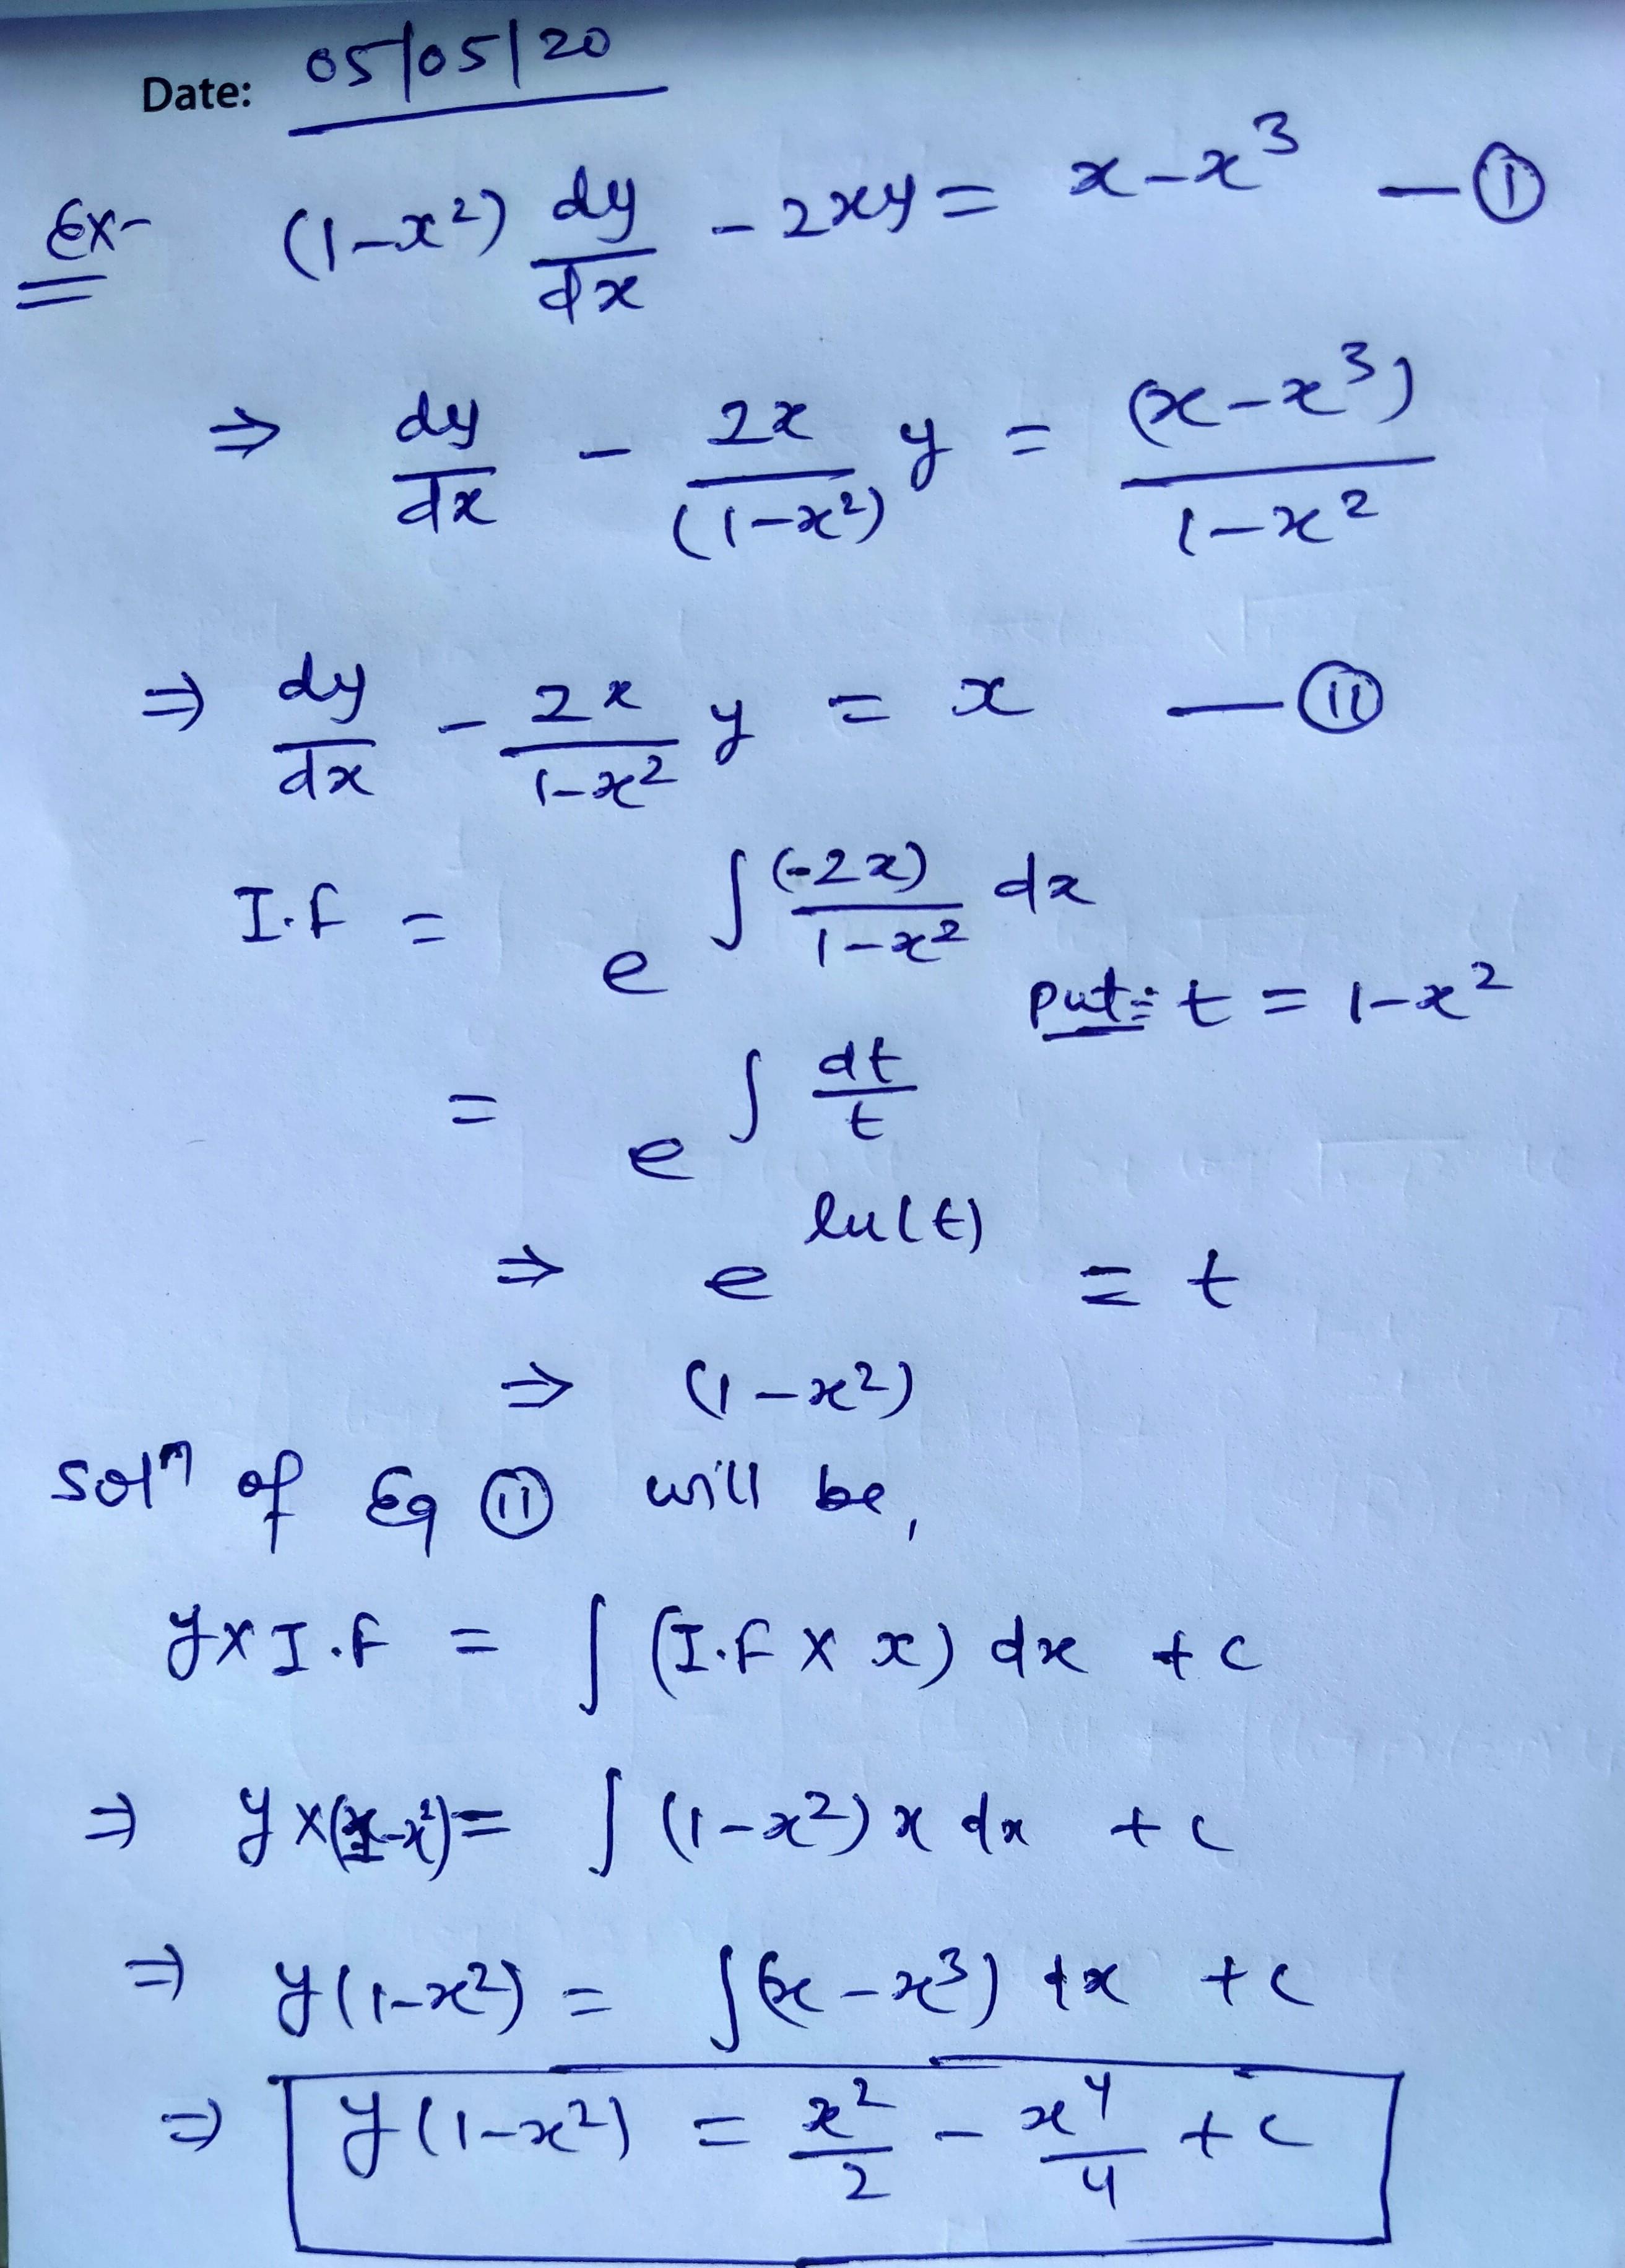 Date: 05/05/20
Ex- (1-x²) dy/dx - 2xy = x-x³ — (I)
⇒ dy/dx - 2x/(1-x²) y = (x-x³)/1-x²
⇒ dy/dx - 2x/1-x² y = x — (II)
I.F = e^∫(-2x)/1-x² dx
put:- t = 1-x²
= e^∫dt/t
⇒ e^ln(t) = t
⇒ (1-x²)
Solⁿ of Eq (II) will be,
y×I.F = ∫(I.F × x) dx + c
⇒ y×(1-x²) = ∫(1-x²) x dx + c
⇒ y(1-x²) = ∫(x-x³) dx + c
⇒ y(1-x²) = x²/2 - x⁴/4 + c